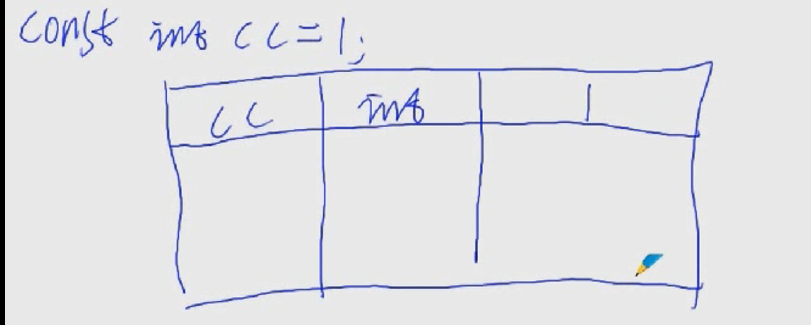 const int cc=1;
cc int 1